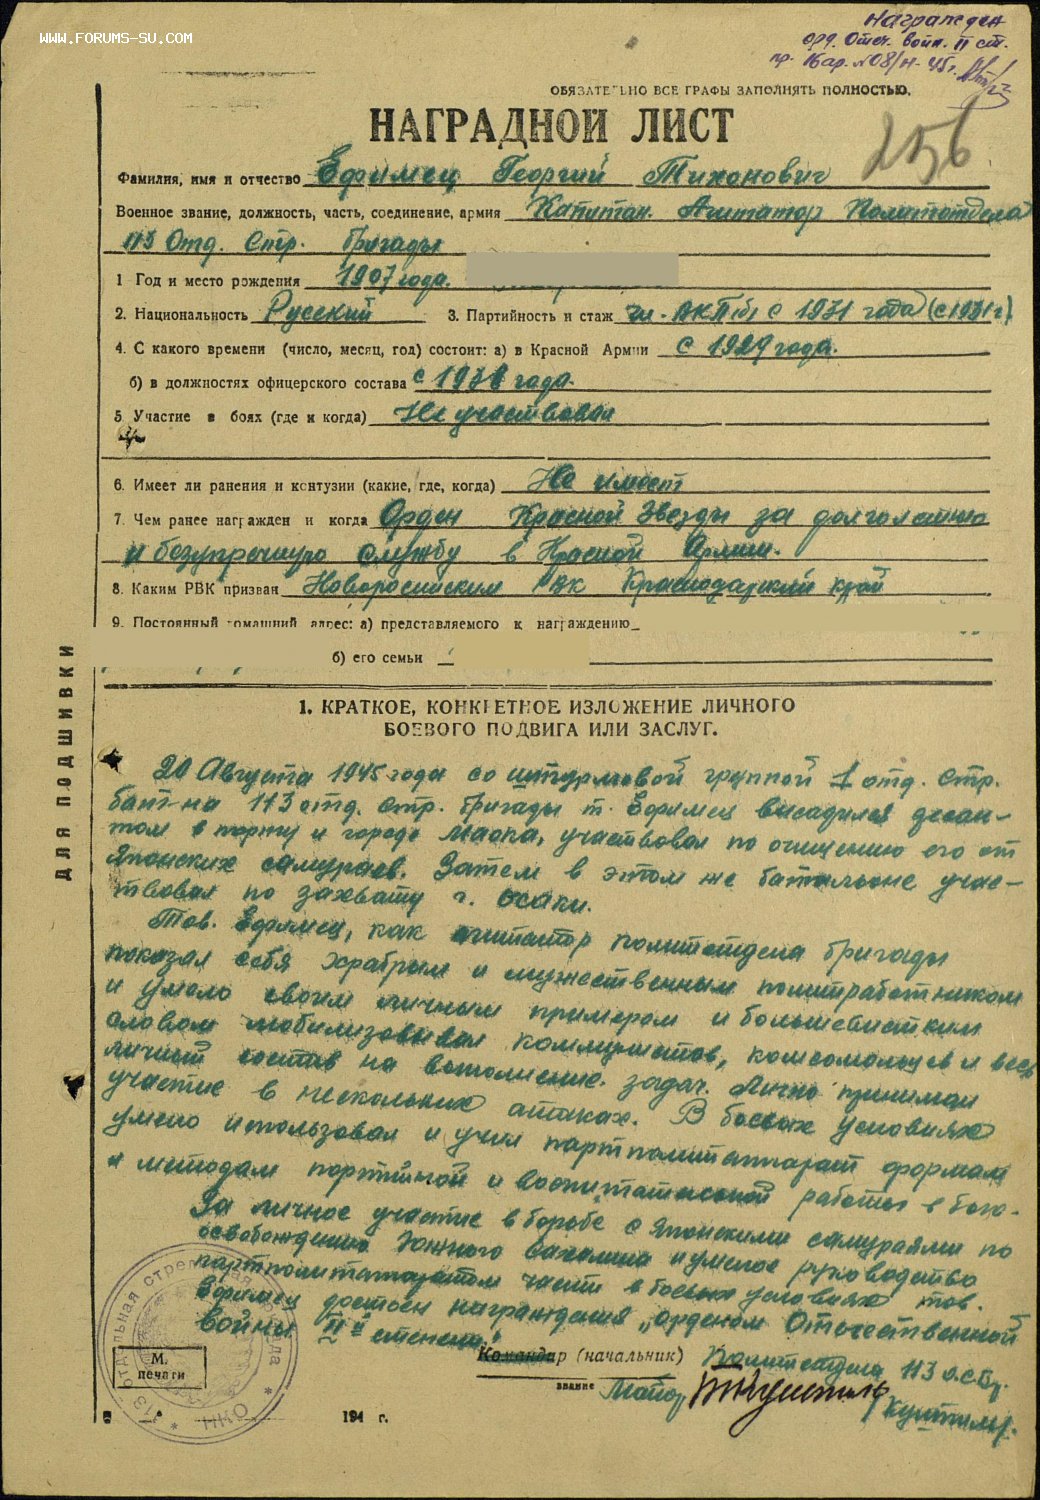 WWW.FORUMS-SU.COM
Награжден
орд. Отеч. войн. II ст.
пр. 16 ар. №08/н-45г.
ОБЯЗАТЕЛЬНО ВСЕ ГРАФЫ ЗАПОЛНЯТЬ ПОЛНОСТЬЮ.
НАГРАДНОЙ ЛИСТ
256
Фамилия, имя и отчество Ефимец Георгий Тихонович
Военное звание, должность, часть, соединение, армия Капитан. Агитатор Политотдела
113 Отд. Стр. бригады
1 Год и место рождения 1907 года.
2. Национальность Русский 3. Партийность и стаж чл. ВКП(б) с 1931 года (с 1931 г.)
4. С какого времени (число, месяц, год) состоит: а) в Красной Армии с 1929 года.
б) в должностях офицерского состава с 1938 года.
5. Участие в боях (где и когда) Не участвовал
6. Имеет ли ранения и контузии (какие, где, когда) Не имеет
7. Чем ранее награжден и когда Орден Красной Звезды за долголетнюю
и безупречную службу в Красной Армии.
8. Каким РВК призван Новоросийским РВК Краснодарский край
9. Постоянный домашний адрес: а) представляемого к награждению
б) его семьи
ДЛЯ ПОДШИВКИ
1. КРАТКОЕ, КОНКРЕТНОЕ ИЗЛОЖЕНИЕ ЛИЧНОГО
БОЕВОГО ПОДВИГА ИЛИ ЗАСЛУГ.
20 Августа 1945 года со штурмовой группой 1 отд. стр.
бат-на 113 отд. стр. бригады т. Ефимец высадился десан-
том в порту и городе Маока, участвовал по очищению его от
Японских самураев. Затем в этом же батальоне учас-
твовал по захвату г. Осаки.
Тов. Ефимец, как агитатор политотдела бригады
показал себя храбрым и мужественным политработником
и умело своим личным примером и большевистким
словом мобилизовывал коммунистов, комсомольцев и весь
личный состав на выполнение задач. Лично принимал
участие в нескольких атаках. В боевых условиях
умело использовал и учил партполитаппарат формам
и методам партийной и воспитательной работы в бою.
За личное участие в борьбе с Японскими самураями по
освобождению Южного Сахалина и умелое руководство
партполитаппаратом части в боевых условиях тов.
Ефимец достоен награждения „орденом Отечественной
войны II й степени."
Командир (начальник) Политотдела 113 о.с.бр.
звание Майор /Куштиль/.
М.
печати
113 отдельная стрелковая бригада * ОНИ *
194 г.